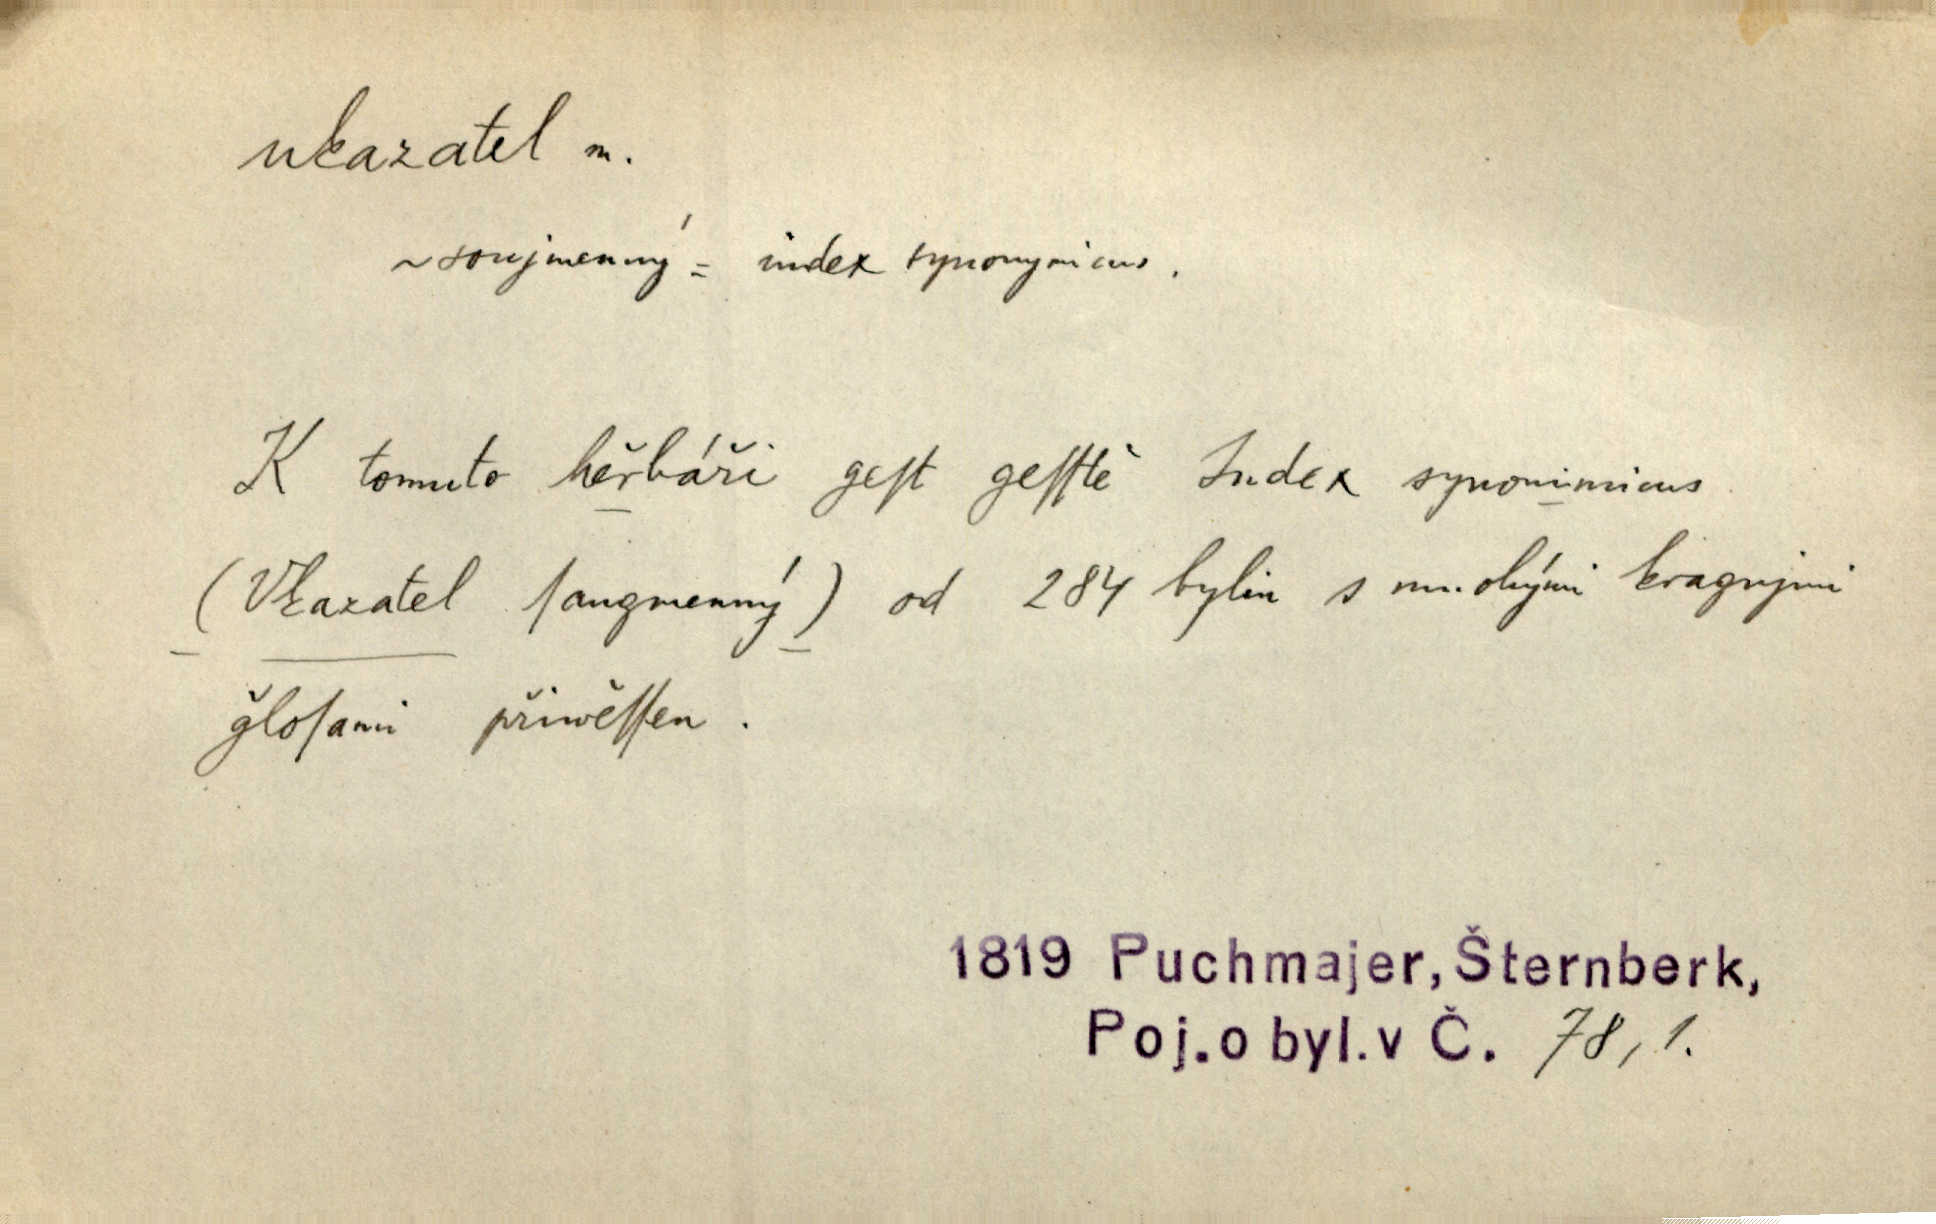 ukazatel m.
~ soujmenný = index synonymicus.
K tomuto heřbáři geſt geſſtě Index synonimicus
(Vkazatel ſaugmenný) od 284 bylin s mnohými kragnjmi
ğloſami přiwěſſen.
1819 Puchmajer, Šternberk,
Poj. o byl. v Č. 78, 1.